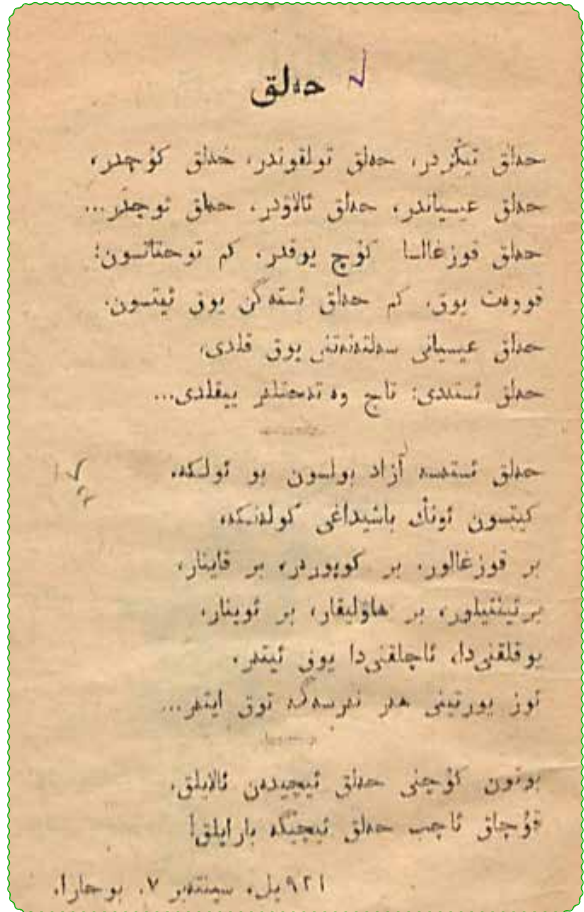 حەلق
حەلق تېڭزدر، حەلق تولقوندر، حەلق كۇچدر،
حەلق عيسياندر، حەلق ئالاۋدر، حەلق ئوچدر...
حەلق قوزغالسا كۇچ يوقدر، كم توحتاتسون؛
قووەت يوق، كم حەلق ئستەگن يوق ئيتسون.
حەلق عيسيانى سەلتەنەتنى يوق قلدى،
حەلق ئستەدى: تاج وە تەحتلەر ييقلدى...
حەلق ئستەسە آزاد بولسون بو ئولكە،
كيتسون ئونڭ باشيداغى كولەنكە،
بر قوزغالور، بر كوپورەر، بر قاينار،
بر ئينتيلور، بر هاۋليقار، بر ئوينار،
يوقلقنىدا، ئاچلقنىدا يوق ئيتەر،
ئوز يورتينى هەر نەرسەگە توق ايتەر...
بوتون كۇچنى حەلق ئيچيدەن ئالايلق،
قۇچاق ئاچب حەلق ئيچيگە بارايلق!
٩٢١ ايل، سينتەبر ٧، بوحارا.